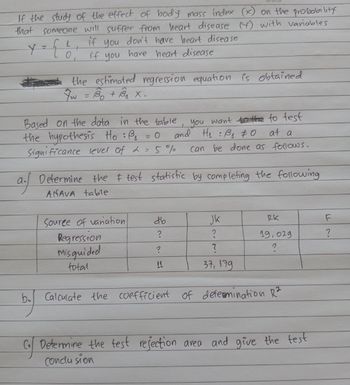 If the study of the effect of body mass index (x) on the probability
that someone will suffer from heart disease (Y) with variables
Y = { 1, if you don't have heart disease
0, if you have heart disease
the estimated regression equation is obtained
ŷw = β̂0 + β̂1 x.
Based on the data in the table, you want to test
the hypothesis H0 : β1 = 0 and H1 : β1 ≠ 0 at a
significance level of α = 5 % can be done as follows.
a. Determine the F test statistic by completing the following
ANAVA table
Source of variation db Jk Rk F
Regression ? ? 19,029 ?
misguided ? ? ?
total 11 37,179
b. Calculate the coefficient of determination R²
c. Determine the test rejection area and give the test
conclusion